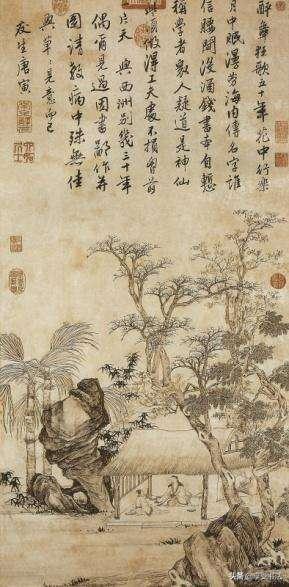 醉舞狂歌五十年花中行樂
月中眠漫勞海内傳名字誰
信腰間没酒錢書本自慙
稱學者衆人疑道是神仙
些須做得工夫處不損胸前
一片天與西洲别幾三十年
偶爾見過因書鄙作并
圖請教病中殊無佳
興草草見意而已
友生唐寅
头条